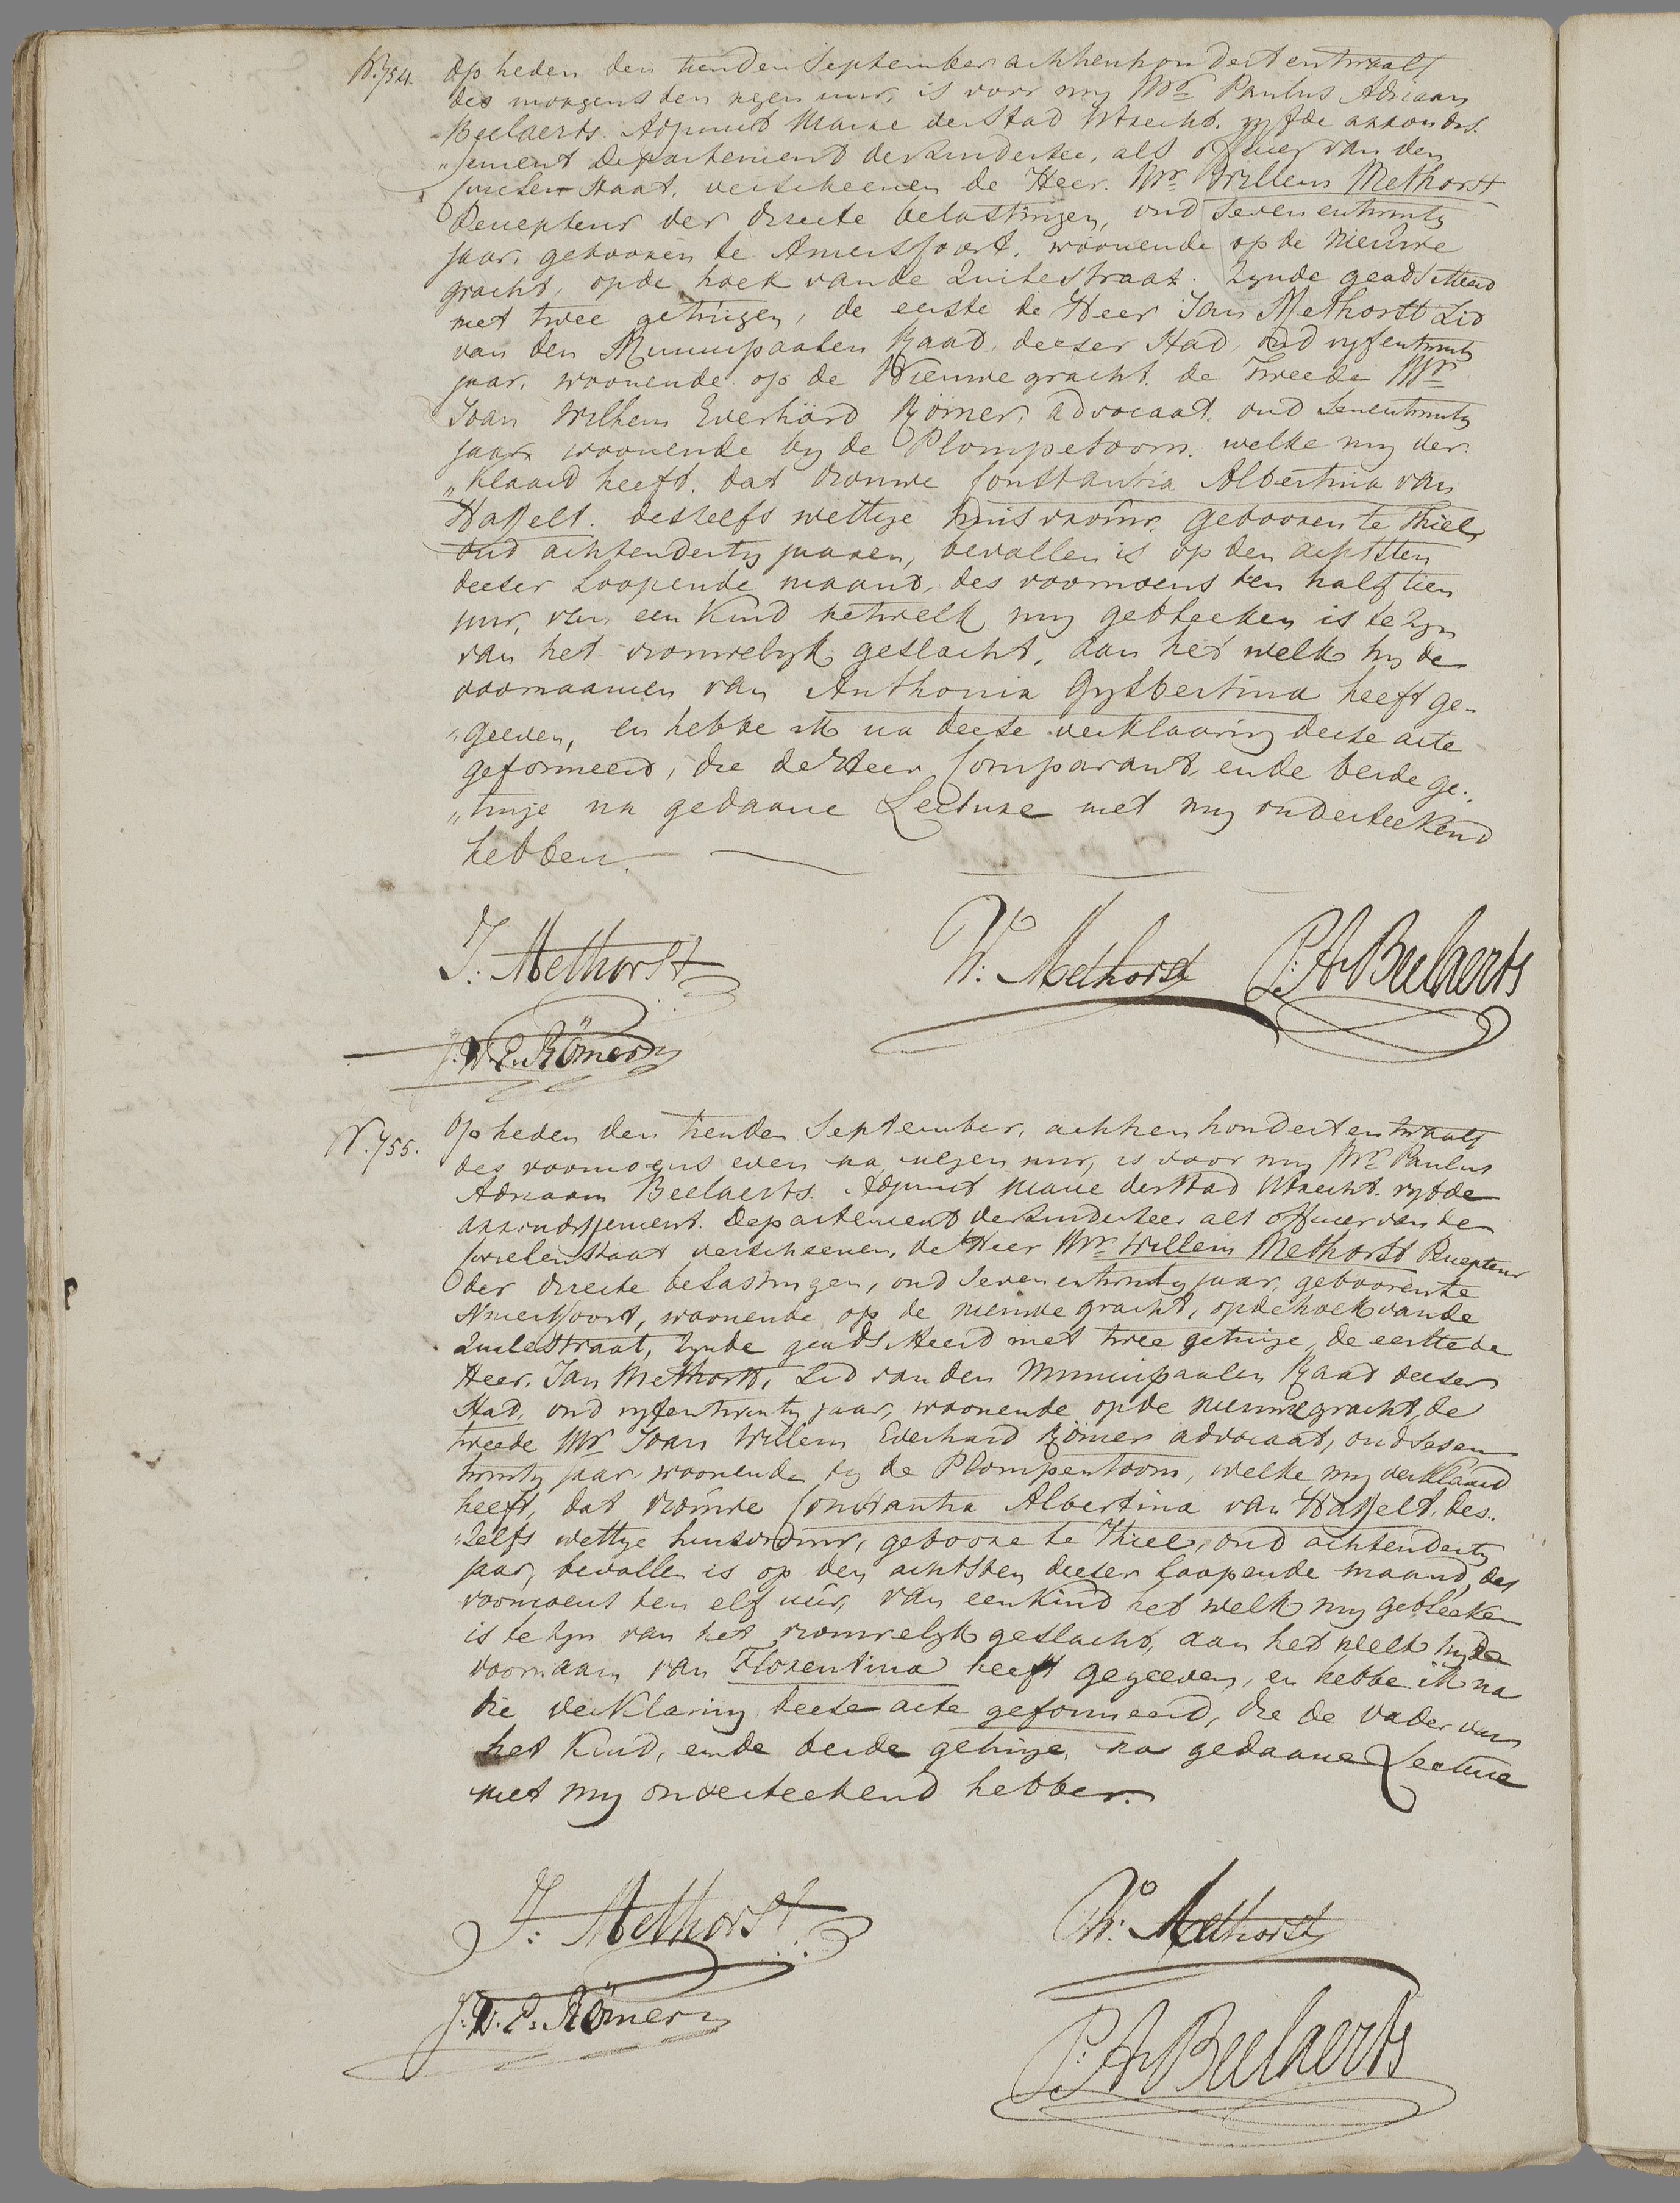 N. 754. Op heden den tienden September achtienhondert entwaalf
des morgens ten negen uur, is voor my Mr. Paulus Adriaan
Beelaerts. Adjunct Maire der Stad Utrecht. vyfde arrondis.
„sement Departement der Zuiderzee, als officier van den
Civielen Staat. verscheenen de Heer. Mr. Willem Methorst
Recepteur der directe belastingen, oud sevenentwintig
jaar, gebooren te Amersfoort, woonende op de Nieuwe
gracht, op de hoek van de Zuilestraat. Zynde geadsisteerd
met twee getuigen, de eerste de Heer Jan Methorst Lid
van den Municipaalen Raad deeser Stad, oud vyfentwintig
jaar, woonende op de Nieuwe gracht. de Tweede Mr.
Joan Wilhem Everhard Römer, advocaat, oud sesentwintig
jaar, woonende by de Plompetoorn. welke my ver.
„klaard heeft. dat vrouwe Constantia Albertina van
Hasselt. desselfs wettige huisvrouw. gebooren te Thiel
oud achtendertig jaaren, bevallen is op den achtsten
deeser loopende maand, des voormoens ten half tien
uur, van een kind hetwelk my gebleeken is te zyn
van het vrouwelyk geslacht, aan het welk hy de
voornaamen van Anthonia Gysbertina heeft ge-
„geeven, en hebbe ik na deese verklaaring deese acte
geformeerd, die de Heer Comparant, en de beide ge.,
„tuige na gedaane Lecture met my onderteekend
hebben.
J: Methorst W: Methorst P: A: Beelaerts
J. W. E. Römer
N. 755. Op heden den tienden September, achtienhondert entwaalf
des voormoens even na negen uur, is voor my Mr. Paulus
Adriaan Beelaerts. Adjunct Maire der Stad Utrecht. vyfde
arrondissement. Departement der Zuiderzee als officier van de
Civielen Staat verscheenen, de Heer Mr. Willem Methorst Recepteur
der directe belastingen, oud sevenentwintig jaar, gebooren te
Amersfoort, woonende op de nieuwe gracht, op de hoek van de
Zuilestraat, Zynde geadsisteerd met twee getuige, de eerste de
Heer. Jan Methorst, Lid van den Municipaalen Raad deeser
Stad, oud vyfentwintig jaar, woonende op de nieuwe gracht, de
tweede Mr. Joan Willem Everhard Römer advocaat, oud sesen
twintig jaar, woonende by de Plompentoorn, welke my verklaard
heeft, dat vrouwe Constantia Albertina van Hasselt, des..
„zelfs wettige huisvrouw, geboore te Thiel, oud achtendertig
jaar, bevallen is op den achtsten deeser loopende maand, des
voormoens ten elf uur, van een kind het welk my gebleeken
is te zyn van het vrouwelyk geslacht, aan het welk hy de
voornaam van Florentina heeft gegeeven, en hebbe ik na
die verklaring deese acte geformeerd, die de vader van
het kind, en de beide getuige, na gedaane Lecture
met my onderteekend hebben.
J: Methorst W: Methorst
J. W. E. Römer P: A: Beelaerts